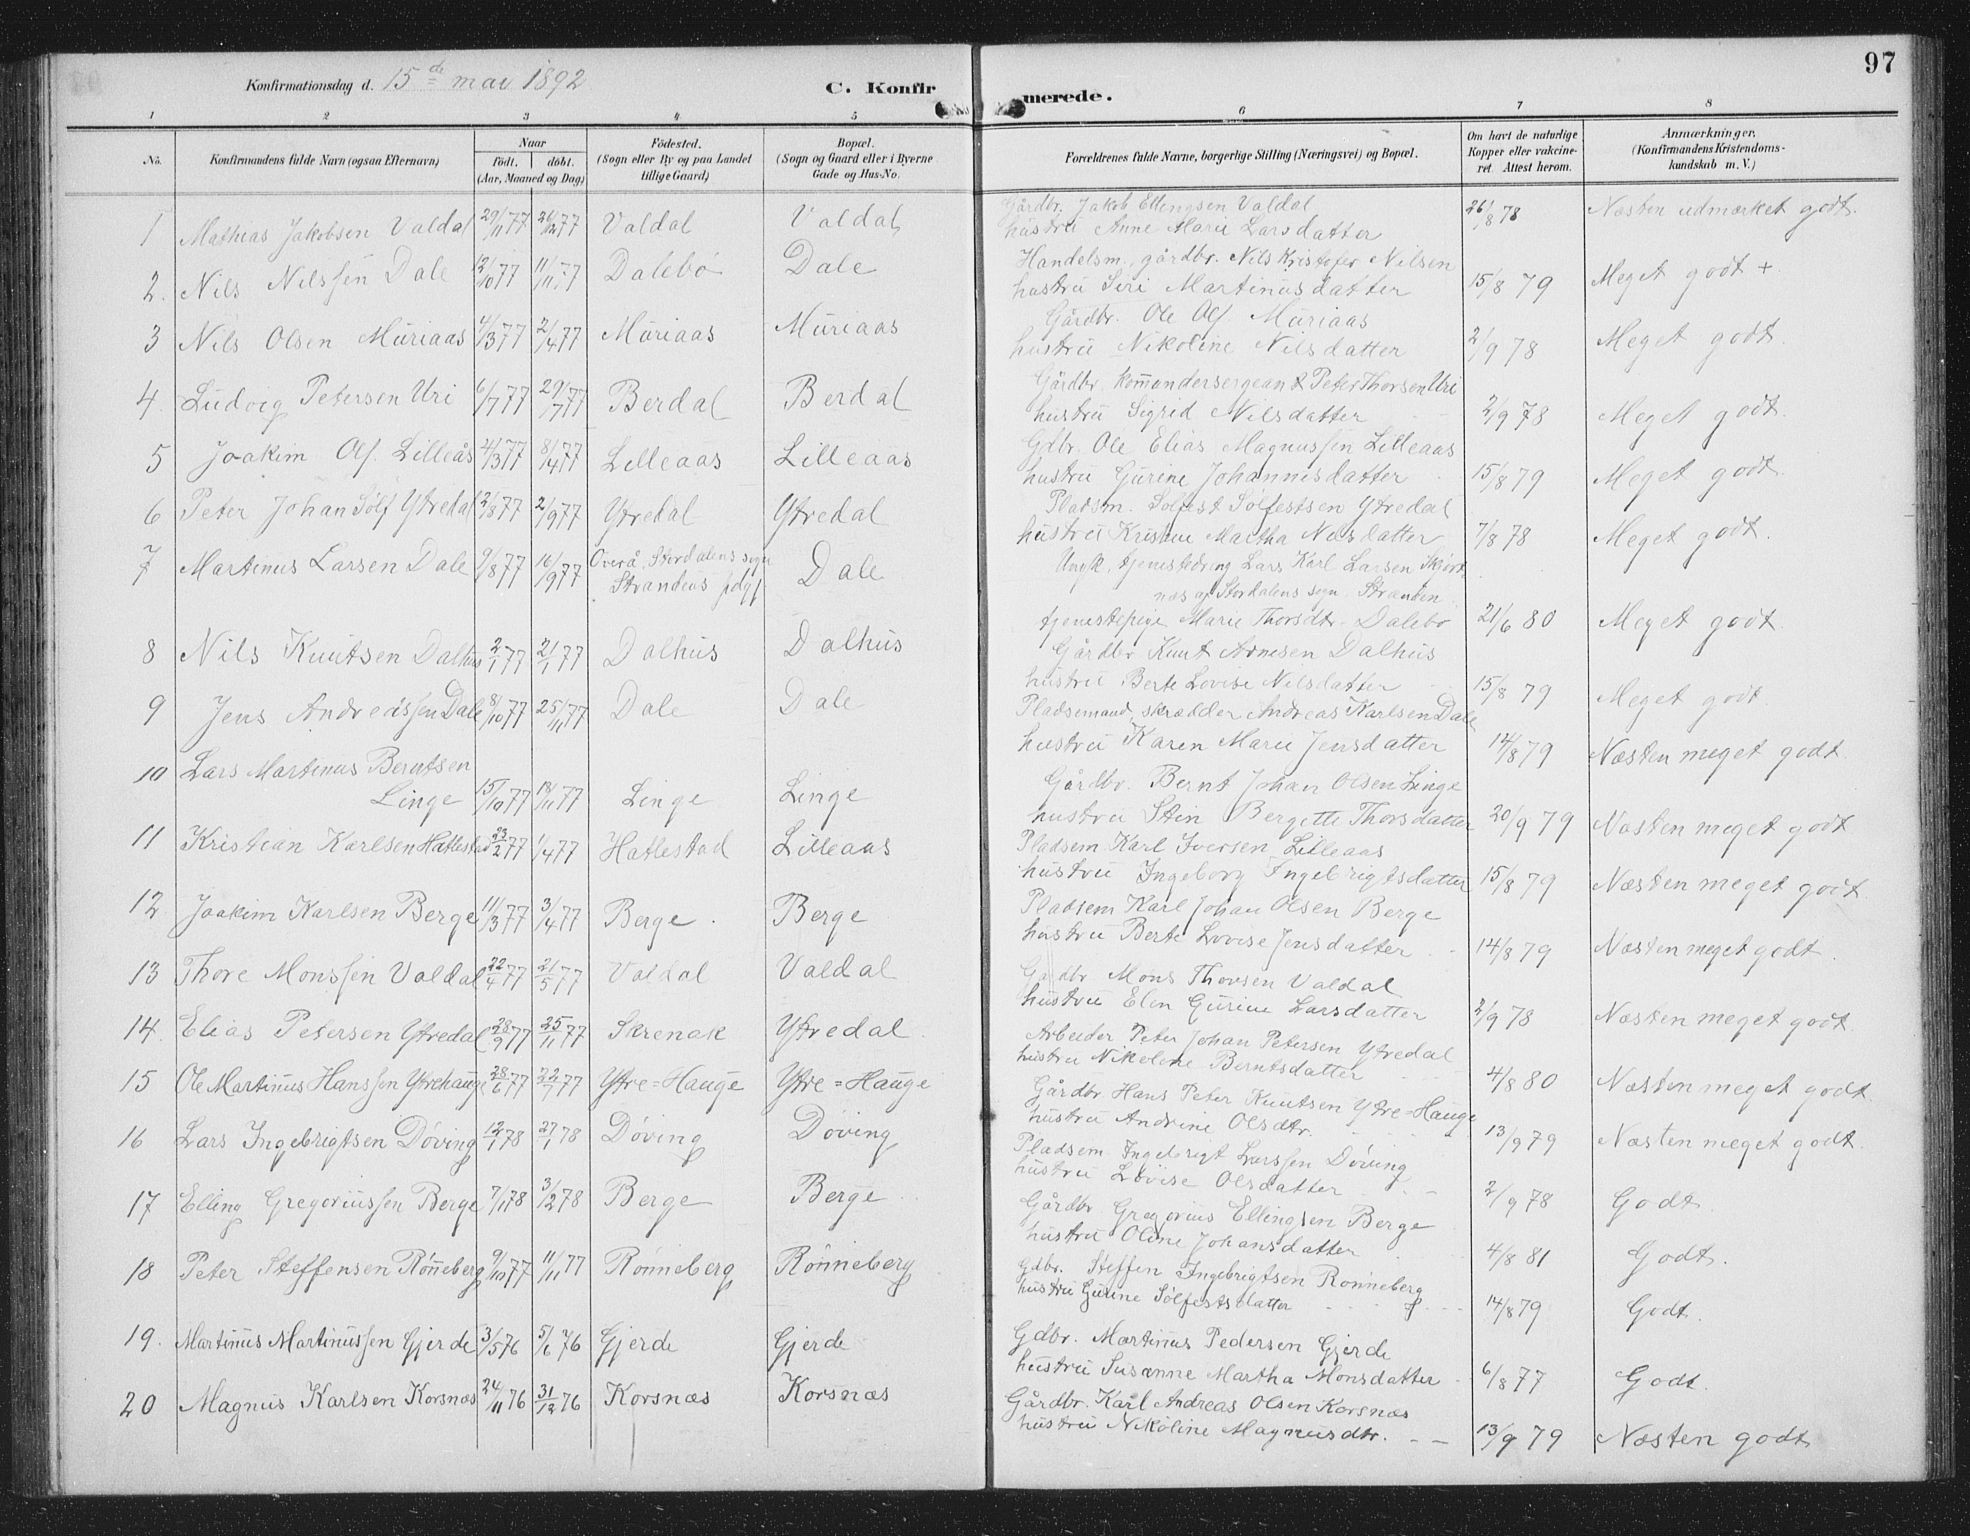 97
Konfirmationsdag d. 15de mai 1892
C. Konfirmerede.
1 2 3 4 5 6 7 8
No.
Konfirmandens fulde Navn (ogsaa Efternavn)
Naar
født. døbt.
(Aar, Maaned og Dag)
Födested.
(Sogn eller By og paa Landet
tillige Gaard)
Bopæl.
(Sogn og Gaard eller i Byerne
Gade og Hus-No.
Forældrenes fulde Navne, borgerlige Stilling (Næringsvei) og Bopæl.
Om havt de naturlige
Kopper eller vakcine-
ret Attest herom.
Anmærkninger,
(Konfirmandens Kristendoms-
kundskab m. V.)
1 Mathias Jakobsen Valdal 29/11 77 26/12 77 Valdal Valdal Gårdbr. Jakob Ellingsen Valdal
hustru Anne Marie Larsdatter 26/8 78 Næsten udmærket godt.
2. Nils Nilssen Dale 12/10 77 11/11 77 Dalebö Dale Handelsm., gårdbr. Nils Kristofer Nilsen
hustru Siri Martinusdatter 15/8 79 Meget godt +
3 Nils Olsen Muriaas 4/3 77 2/4 77 Muriaas Muriaas Gårdbr. Ole Ols Muriaas
hustru Nikoline Nilsdatter 2/9 78 Meget godt.
4. Ludvig Petersen Uri 6/7 77 29/7 77 Berdal Berdal Gårdbr. kommandersergeant Peter Thorsen Uri
hustru Sigrid Nilsdatter 2/9 78 Meget godt.
5 Joakim Ols. Lilleås 4/3 77 8/4 77 Lilleaas Lilleaas Gdbr. Ole Elias Magnussen Lilleaas
hustru Gurine Johannesdatter 15/8 79 Meget godt.
6 Peter Johan Sølf Ytredal 2/8 77 2/9 77 Ytredal Ytredal Pladsm. Solfest Solfestsen Ytredal
hustru Kristine Martha Nilsdatter 7/8 78 Meget godt.
7 Martinus Larsen Dale 9/8 77 16/9 77 Overå, Stordalens sogn
Strandens pdgj Dale Ungk, tjenestedreng Lars Karl Larsen
næs af Stordalens sogn Stranden
tjenestepige Marie Thorsdtr. Dalebö 21/6 80 Meget godt.
8 Nils Knutsen Dalhus 2/1 77 21/1 77 Dalhus Dalhus Gårdbr. Knut Arnesen Dalhus
hustru Berte Lovise Nilsdatter 15/8 79 Meget godt
9 Jens Andreassen Dale 8/10 77 25/11 77 Dale Dale Pladsemand, skrædder Andreas Karlsen Dale
hustru Karen Marie Jensdatter 14/8 79 Næsten meget godt.
10 Lars Martinus Berntsen
Linge 15/10 77 18/11 77 Linge Linge Gårdbr. Bernt Johan Olsen Linge
hustru Stin Bergette Thorsdatter 20/9 79 Næsten meget godt
11 Kristian Karlsen Hatlestad 23/2 77 1/4 77 Hatlestad Lilleaas Pladsem Karl Iversen Lilleaas
hustru Ingeborg Ingebrigtsdatter 15/8 79 Næsten meget godt
12 Joakim Karlsen Berge 11/3 77 3/4 77 Berge. Berge Pladsem Karl Johan Olsen Berge
hustru Berte Lovise Jensdatter 14/8 79 Næsten meget godt.
13 Thore Monssen Valdal 22/4 77 21/5 77 Valdal Valdal Gårdbr Mons Thorsen Valdal
hustru Elen Gurine Larsdatter 2/9 78 Næsten meget godt.
14. Elias Petersen Ytredal 28/9 77 25/11 77 Skrenak Ytredal Arbeider Peter Johan Petersen Ytredal
hustru Nikoline Berntsdatter 4/8 80 Næsten meget godt.
15 Ole Martinus Hanssen Ytrehauge 28/6 77 22/7 77 Ytre=Hauge Ytre=Hauge Gårdbr Hans Peter Knutsen Ytre=Hauge
hustru Andrine Olsdtr. 13/9 79 Næsten meget godt.
16 Lars Ingebrigtsen Døving 12/1 78 27/1 78 Døving Døving Pladsem Ingebrigt Larssen Døving
hustru Lovise Olsdatter 2/9 78 Godt.
17 Elling Gregoriussen Berge 7/1 78 3/2 78 Berge Berge Gårdbr Gregorius Ellingsen Berge
hustru Oline Johansdatter 4/8 81 Godt.
18 Peter Steffensen Rønneberg 9/10 77 11/11 77 Rønneberg Rønneberg Gdbr. Steffen Ingebrigtsen Rønneberg
hustru Gurine Solfestsdatter 14/8 79 Godt.
19. Martinus Martinussen Gjerde 3/5 76 5/6 76 Gjerde Gjerde Gdbr. Martinus Pedersen Gjerde
hustru Susanne Martha Monsdatter 6/8 77 Godt.
20 Magnus Karlsen Korsnæs 24/11 76 31/12 76 Korsnæs Korsnæs Gårdbr. Karl Andreas Olsen Korsnæs
hustru Nikoline Magnusdtr. 13/9 79 Næsten godt